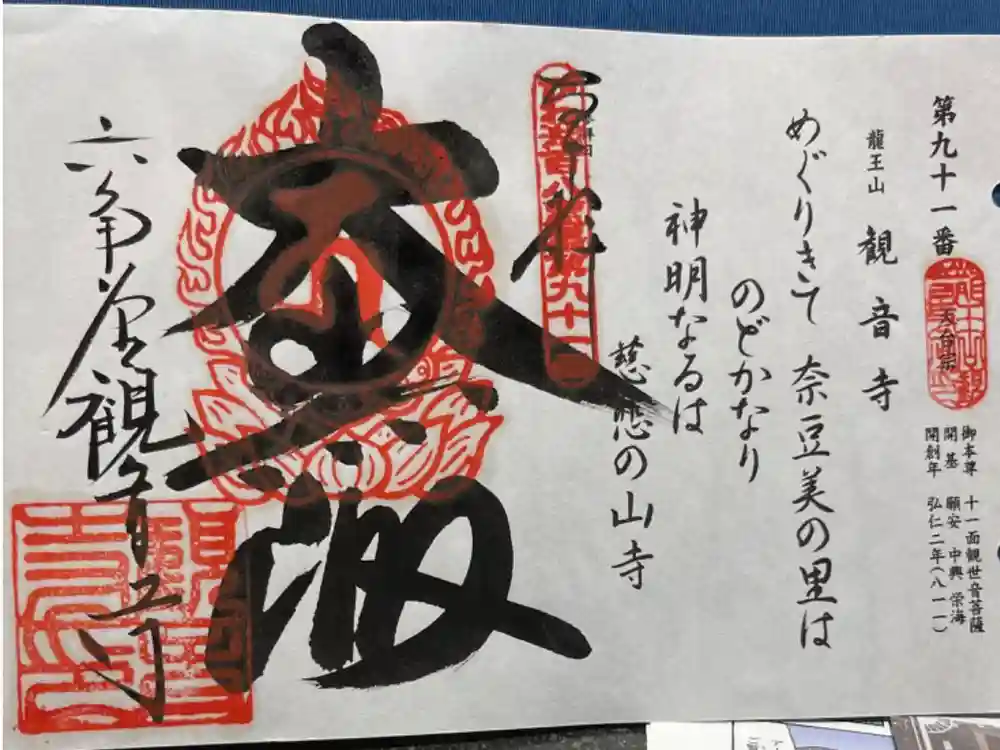 第九十一番
天台宗
龍王山 観音寺
御本尊 十一面観世音菩薩
開基 願安 中興 栄海
開創年 弘仁二年(八一一)
めぐりきて 奈豆美の里は
のどかなり
神明なるは
慈悲の山寺
奉拝
大悲殿
観音寺